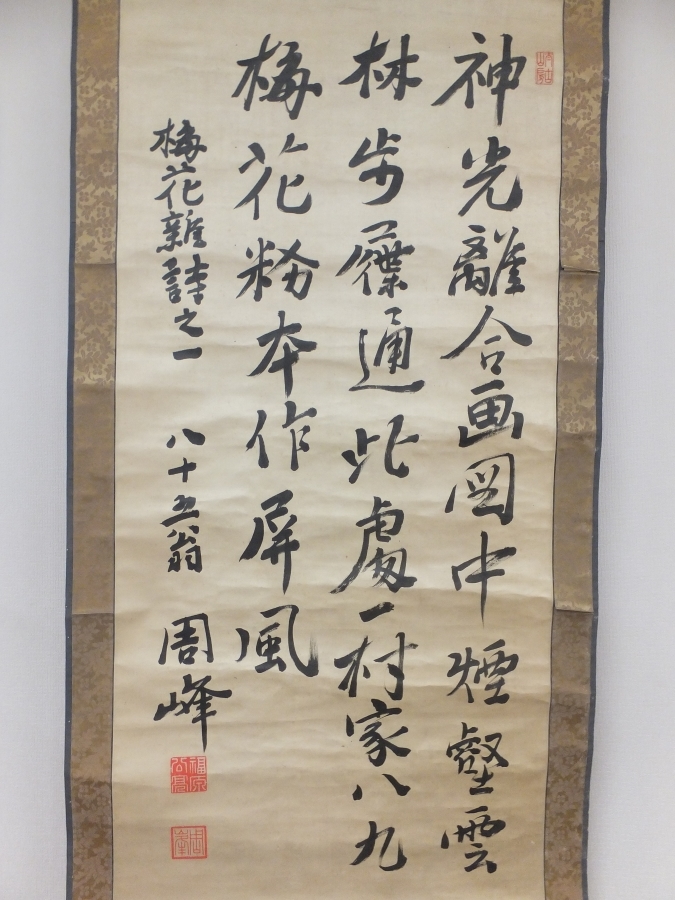 神光離合画図中煙壑雲
林歩屧通此處一村家八九
梅花粉本作屏風
梅花雜詩之一 八十五翁 周峰
福原
公亮
周峯